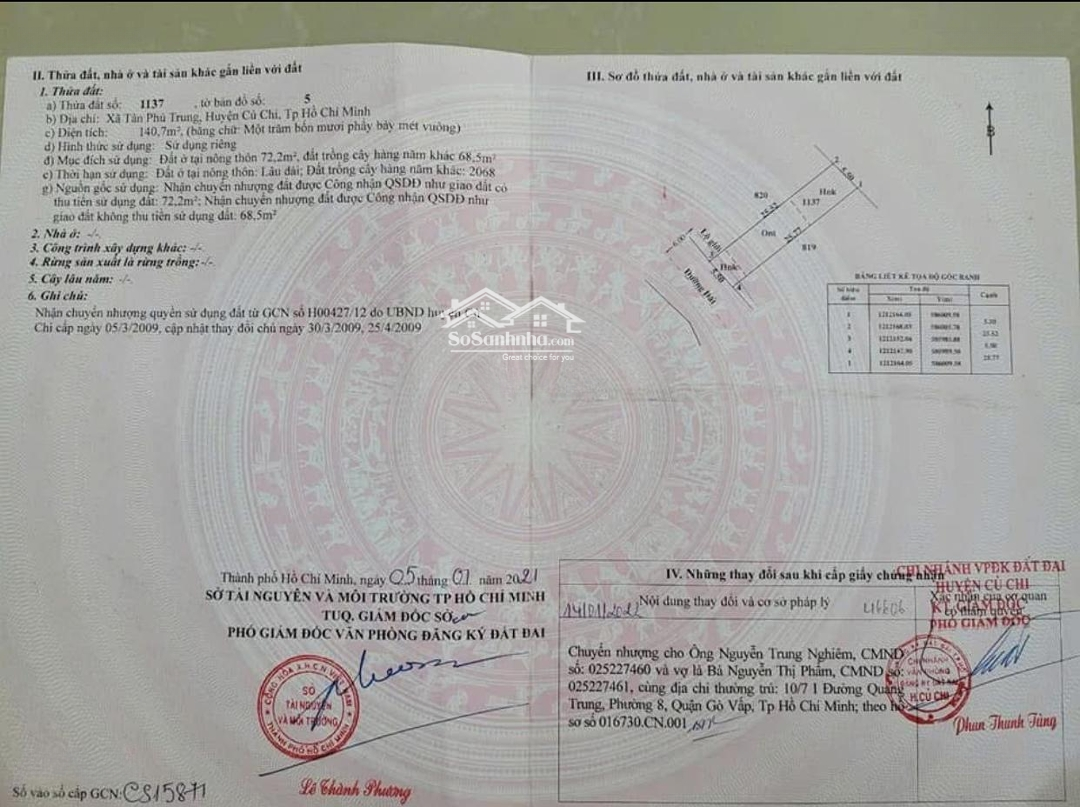 II. Thửa đất, nhà ở và tài sản khác gắn liền với đất
1. Thửa đất:
a) Thửa đất số: 1137 , tờ bản đồ số: 5
b) Địa chỉ: Xã Tân Phú Trung, Huyện Củ Chi, Tp Hồ Chí Minh
c) Diện tích: 140,7m², (bằng chữ: Một trăm bốn mươi phẩy bảy mét vuông)
d) Hình thức sử dụng: Sử dụng riêng
đ) Mục đích sử dụng: Đất ở tại nông thôn 72,2m², đất trồng cây hàng năm khác 68,5m²
e) Thời hạn sử dụng: Đất ở tại nông thôn: Lâu dài; Đất trồng cây hàng năm khác: 2068
g) Nguồn gốc sử dụng: Nhận chuyển nhượng đất được Công nhận QSDĐ như giao đất có
thu tiền sử dụng đất: 72,2m²; Nhận chuyển nhượng đất được Công nhận QSDĐ như
giao đất không thu tiền sử dụng đất: 68,5m²
2. Nhà ở: -/-.
3. Công trình xây dựng khác: -/-.
4. Rừng sản xuất là rừng trồng: -/-.
5. Cây lâu năm: -/-
6. Ghi chú:
Nhận chuyển nhượng quyền sử dụng đất từ GCN số H00427/12 do UBND huyện Củ
Chi cấp ngày 05/3/2009, cập nhật thay đổi chủ ngày 30/3/2009, 25/4/2009
SoSanhnha.com
Great choice for you
Thành phố Hồ Chí Minh, ngày 05 tháng 01 năm 2021
SỞ TÀI NGUYÊN VÀ MÔI TRƯỜNG TP HỒ CHÍ MINH
TUQ. GIÁM ĐỐC SỞ
PHÓ GIÁM ĐỐC VĂN PHÒNG ĐĂNG KÝ ĐẤT ĐAI
CỘNG HÒA X.H.C.N VIỆT NAM
SỞ
TÀI NGUYÊN
VÀ MÔI TRƯỜNG
THÀNH PHỐ HỒ CHÍ MINH
Lê Thành Phương
Số vào sổ cấp GCN: CS15871
III. Sơ đồ thửa đất, nhà ở và tài sản khác gắn liền với đất
B
2
5.50
820
Hnk
1137
25.52
Ont
25.77
819
Lộ giới
6.00
Hnk
5.50
Đường Đất
BẢNG LIỆT KÊ TỌA ĐỘ GÓC RANH
Số hiệu điểm
Tọa độ
X(m)
Y(m)
Cạnh
1
2
3
4
1
5.50
25.52
5.50
25.77
IV. Những thay đổi sau khi cấp giấy chứng nhận
CHI NHÁNH VPĐK ĐẤT ĐAI
HUYỆN CỦ CHI
Nội dung thay đổi và cơ sở pháp lý
Xác nhận của cơ quan
có thẩm quyền
KT. GIÁM ĐỐC
PHÓ GIÁM ĐỐC
14/01/2022
46606
Chuyển nhượng cho Ông Nguyễn Trung Nghiêm, CMND
số: 025227460 và vợ là Bà Nguyễn Thị Phẩm, CMND số:
025227461, cùng địa chỉ thường trú: 10/7 I Đường Quang
Trung, Phường 8, Quận Gò Vấp, Tp Hồ Chí Minh; theo hồ
sơ số 016730.CN.001
CHI NHÁNH
VĂN PHÒNG
ĐĂNG KÝ ĐẤT ĐAI
H. CỦ CHI
Phan Thanh Tùng